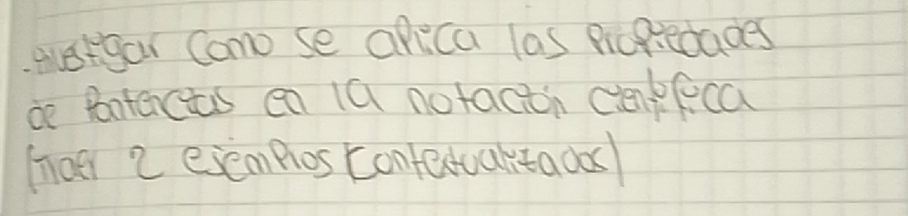 .investigar como se aplica las propiedades
de Potencias en la notación científica
(traer 2 ejemplos contextualizados)